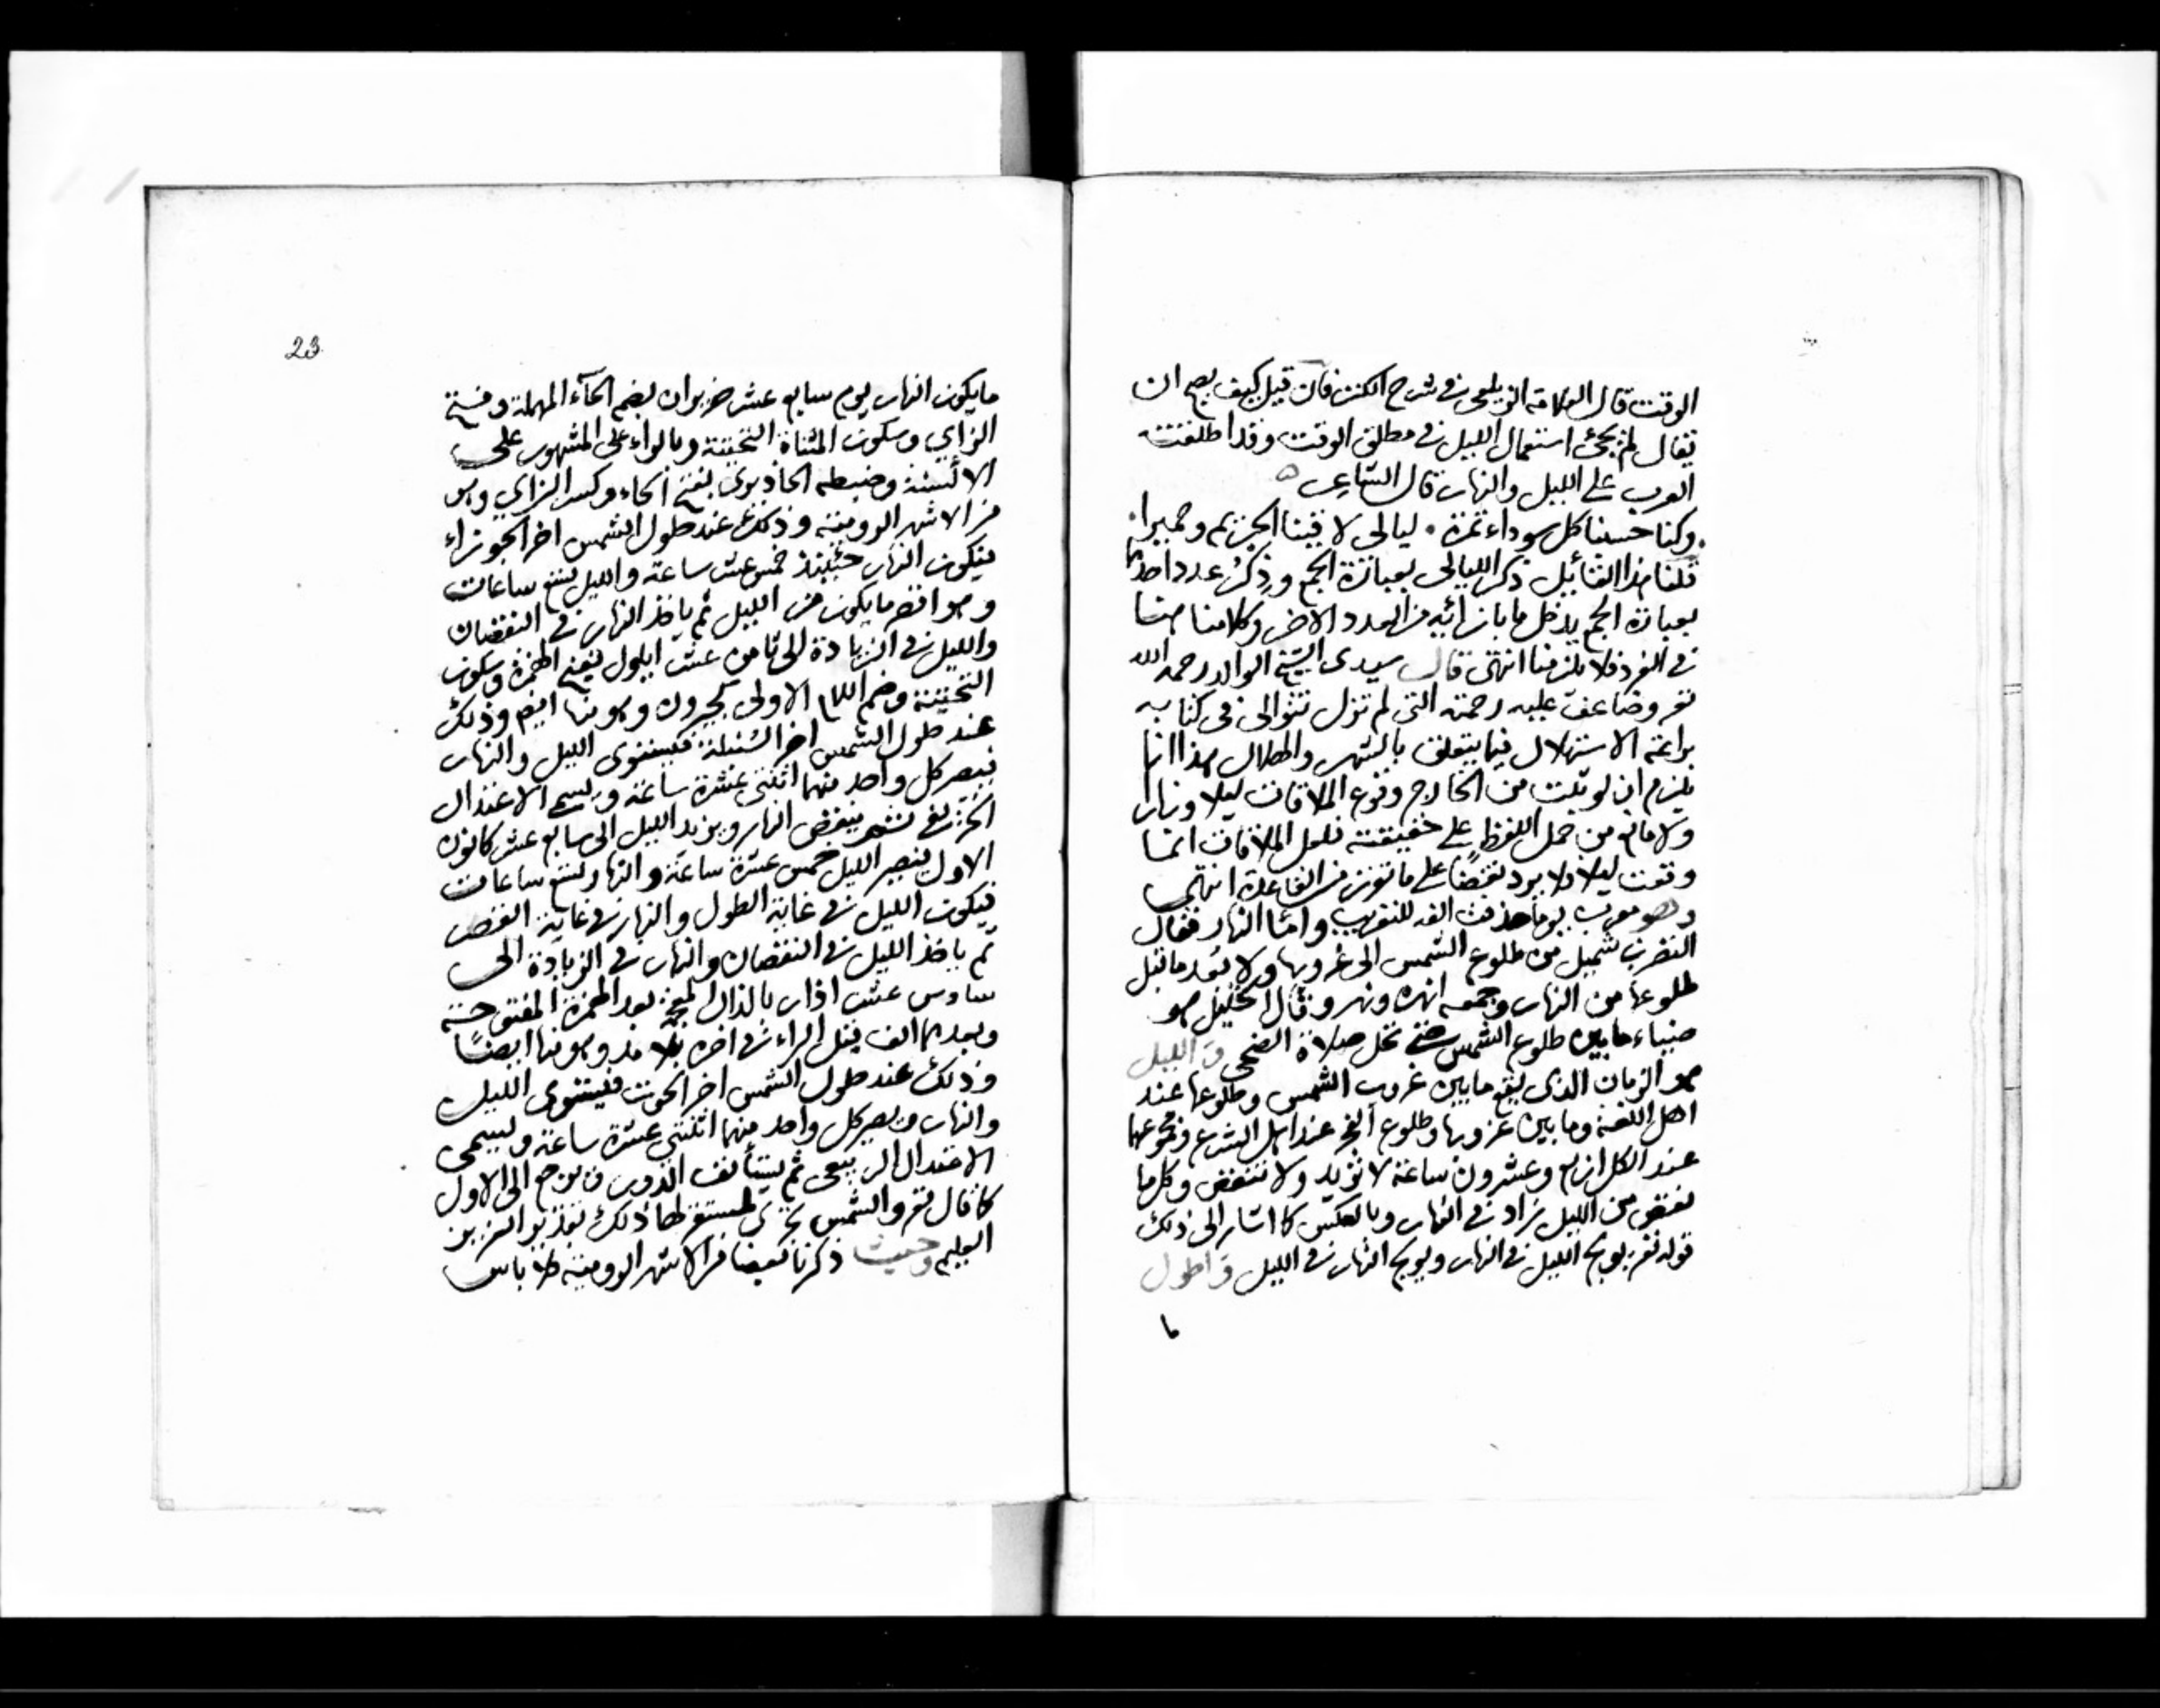 الوقت قال العلامة الزيلعي في شرح الكنز فان قيل كيف يصح ان
يقال لم يجئ استعمال الليل في مطلق الوقت وقد اطلقته
العرب على الليل والنهار قال الشاعر
وكنا حسبنا كل سوداء تمرة ليالي لاقينا الجزيم وحميرا
قلنا هذا القائل ذكر الليالي بعبارة الجمع وذكر عدد احدهما
بعبارة الجمع يدخل ما بازائه من العدد الاخر وكلامنا هنا
في الفرد فلا يلزمنا انتهى قال سيدي الشيخ الوالد رحمه الله
تعـ وضاعف عليه رحمته التي لم تزل تتوالى في كتابه
براعة الاستهلال فيما يتعلق بالشهر والهلال هذا انما
يلزم ان لو ثبت من الخارج وقوع الملاقات ليلا ونهارا
ولا مانع من حمل اللفظ على حقيقته فلعل الملاقات انما
وقعت ليلا فلا يرد نقضا على ما تقرر من القاعدة انتهى
وهو معرب يوما حذفت الفه للتقريب واما النهار فقال
النضر بن شميل من طلوع الشمس الى غروبها ولا يعد ما قبل
طلوعها من النهار وجمعه انهره ونهر وقال الخليل هو
ضياء ما بين طلوع الشمس حتى تحل صلاة الضحى و الليل
هو الزمان الذي يقع ما بين غروب الشمس وطلوعها عند
اهل اللغة وما بين غروبها وطلوع الفجر عند اهل الشرع ومجموعهما
عند الكل اربع وعشرون ساعة لا تزيد ولا تنقص وكل ما
نقص من الليل زاد في النهار وبالعكس كما اشار الى ذلك
قوله تعـ يولج الليل في النهار ويولج النهار في الليل و اطول
ما
23
ما يكون النهار يوم سابع عشر حزيران بضم الحاء المهملة وفتح
الزاي وسكون المثناة التحتية وبالراء على المشهور على
الالسنة وضبطه بفتح الحاء وكسر الزاي وهو
من الاشهر الرومية وذلك عند حلول الشمس اخر الجوزاء
فيكون النهار حينئذ خمس عشر ساعة والليل تسع ساعات
وهو اقصر ما يكون من الليل ثم ياخذ النهار في النقصان
والليل في الزيادة الى ثامن عشر ايلول بفتح الهمزة وسكون
التحتية وضم اللام الاولى وهو منها ايضا وذلك
عند حلول الشمس اخر السنبلة فيستوي الليل والنهار
فيصير كل واحد منهما اثنتي عشرة ساعة ويسمى الاعتدال
الخريفي ثم ينقص النهار ويزيد الليل الى سابع عشر كانون
الاول فيصير الليل خمس عشرة ساعة والنهار تسع ساعات
فيكون الليل في غاية الطول والنهار في غاية القصر
ثم ياخذ الليل في النقصان والنهار في الزيادة الى
سادس عشر اذار بالذال المعجمة بعد الهمزة المفتوحة
وبعدهما الف قبل الراء في اخره بلا مد وهو منها ايضًا
وذلك عند حلول الشمس اخر الحوت فيستوي الليل
والنهار ويصير كل واحد منهما اثنتي عشرة ساعة ويسمى
الاعتدال الربيعي ثم يستأنف الدور فيرجع الى الاول
كما قال تعـ والشمس تجري لمستقر لها ذلك تقدير العزيز
العليم وحيث ذكرنا بعضا من الاشهر الرومية فلا باس